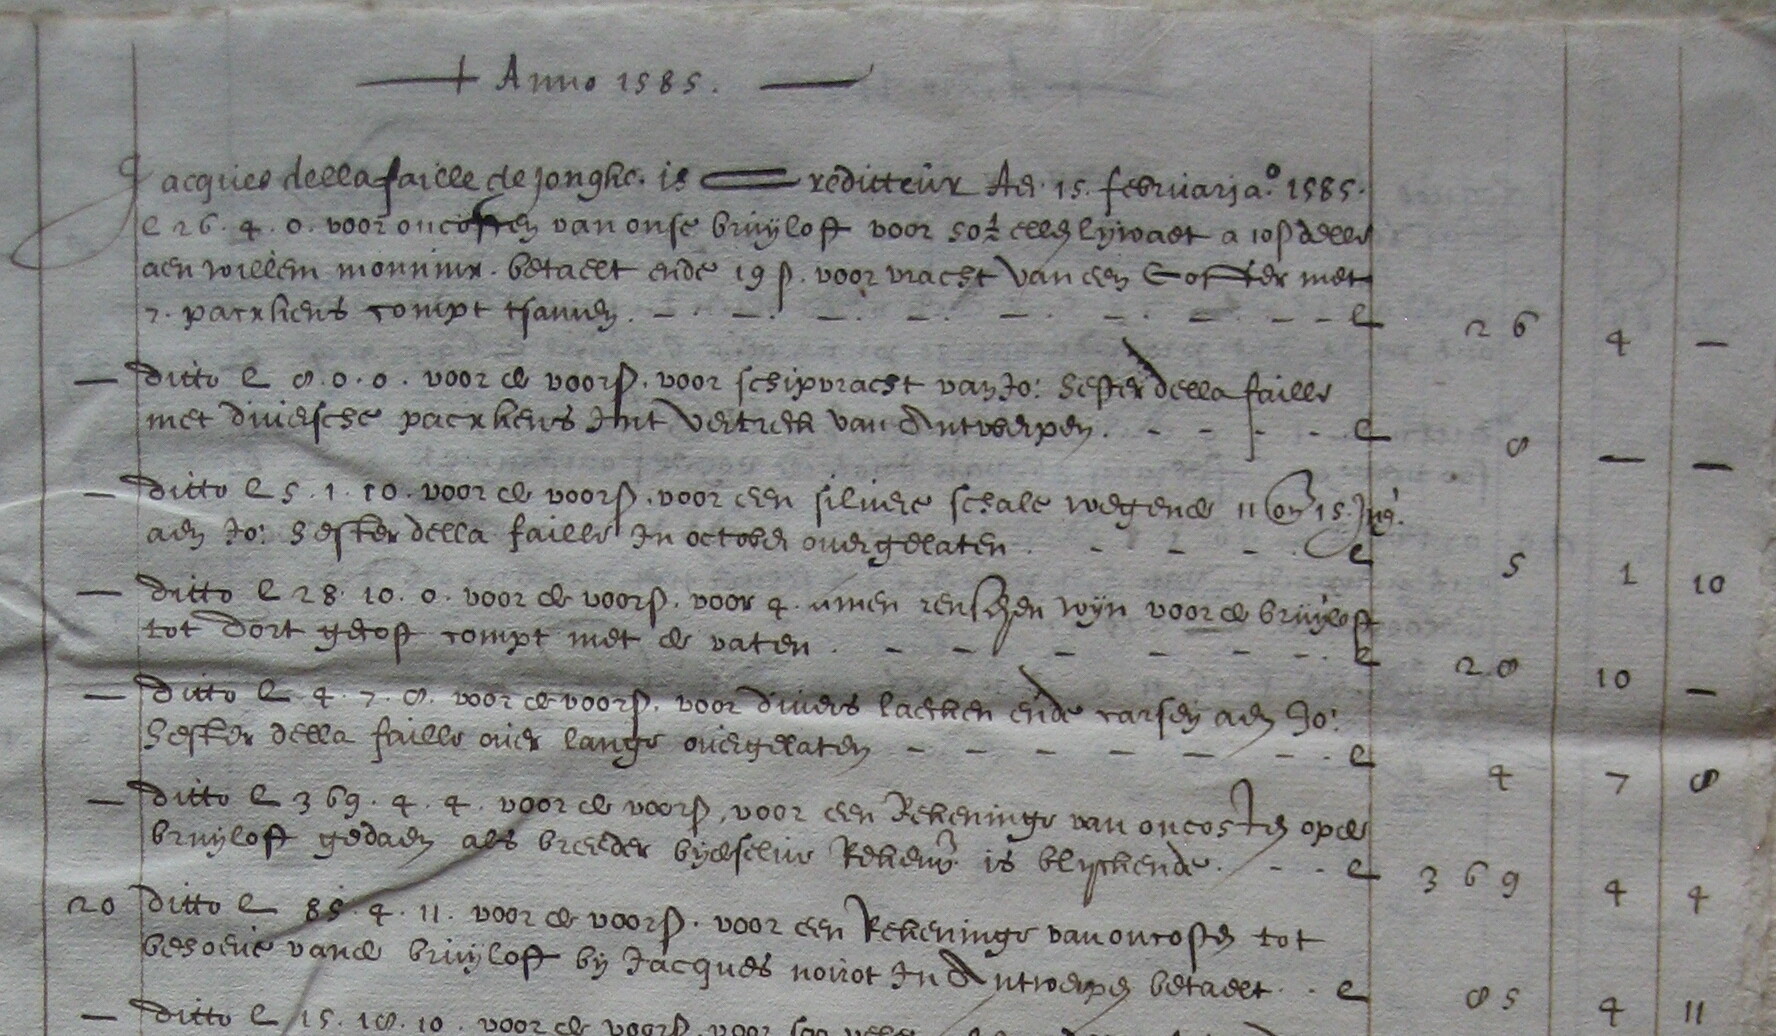 Anno 1585.
Jacques della faille de jonghe. is Crediteur Ad. 15. februarj a.º 1585.
£ 26. 4. 0. voor oncosten van onse bruyloft voor 50½ ellen lijwaet a 10ß delle
aen willem monninx. betaelt ende 19 ß. voor vracht van een Coffer met
2. packxkens compt tsamen. £ 26 4 —
— ditto £ 8. 0. 0. voor de voorß. voor schipvracht van Jo: hester della faille
met diversche packxkens Int vertreck van Antwerpen. £ 8 — —
— ditto £ 5. 1. 10. voor de voorß. voor een silvere schale wegende 11 on 15. Ing.
aen Jo: hester della faille In october overgelaten. £ 5 1 10
— ditto £ 28. 10. 0. voor de voorß. voor 4. amen renschen wyn voor de bruyloft
tot dort gecoft compt met de vaten. £ 28 10 —
— ditto £ 4. 7. 8. voor de voorß. voor divers laecken ende carsey aen Jo:
hester della faille over lange overgelaten £ 4 7 8
— ditto £ 369. 4. 4. voor de voorß. voor een Rekeninge van oncosten opde
bruyloft gedaen als breeder by deselve Rekeny. is blyckende. £ 369 4 4
20 ditto £ 85. 4. 11. voor de voorß. voor een Rekeninge van oncosten tot
behoeve vande bruyloft by Jacques noirot In Antwerpen betaelt. £ 85 4 11
— ditto £ 15. 18. 10. voor de voorß. voor